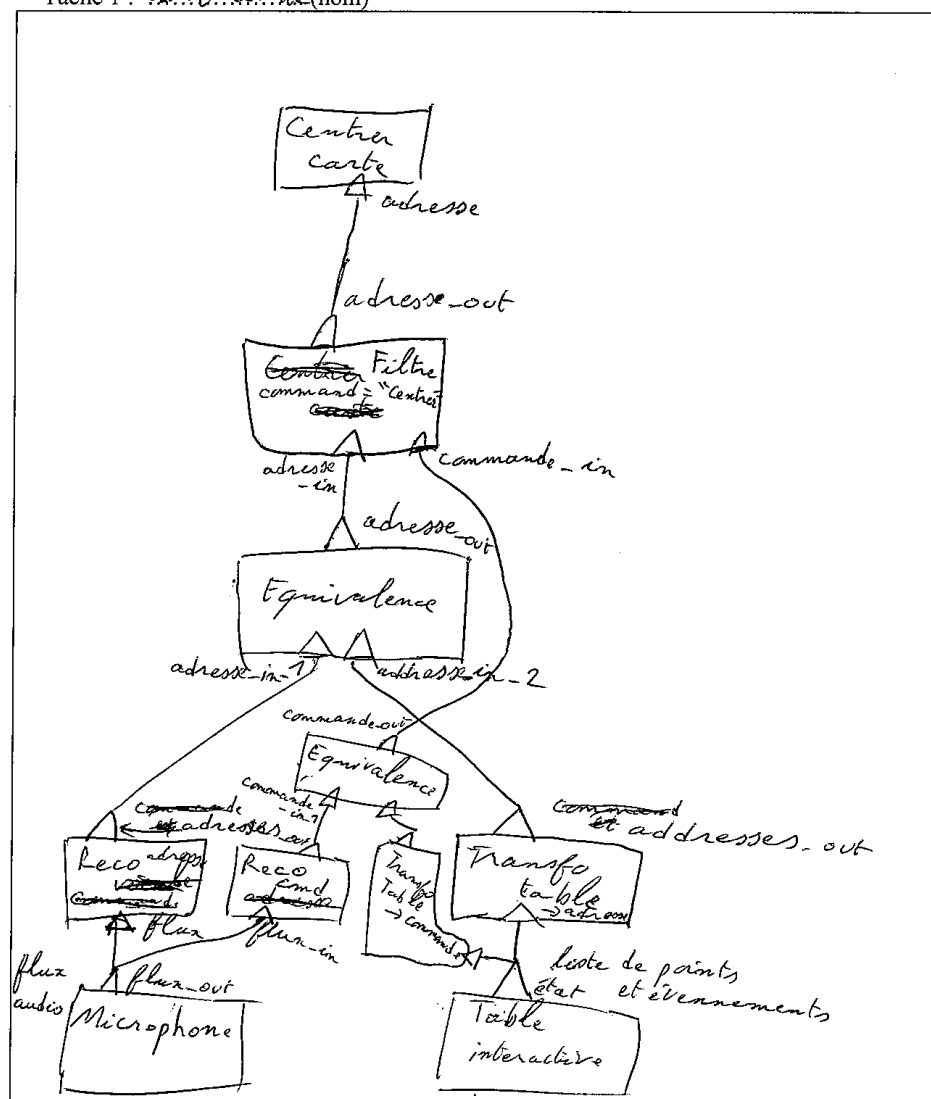 (nom)
Centrer
carte
adresse
adresse_out
Filtre
command = "Centrer"
adresse
_in
commande_in
adresse_out
Equivalence
adresse_in_1
addresse_in_2
commande_out
Equivalence
commande
_in_1
adresses_out
addresses_out
Reco adresse
Reco
cmd
Transfo
Table
→ commande
Transfo
table
→ adresse
flux
flux_in
flux
audio
flux_out
liste de points
état et évennements
Microphone
Table
interactive